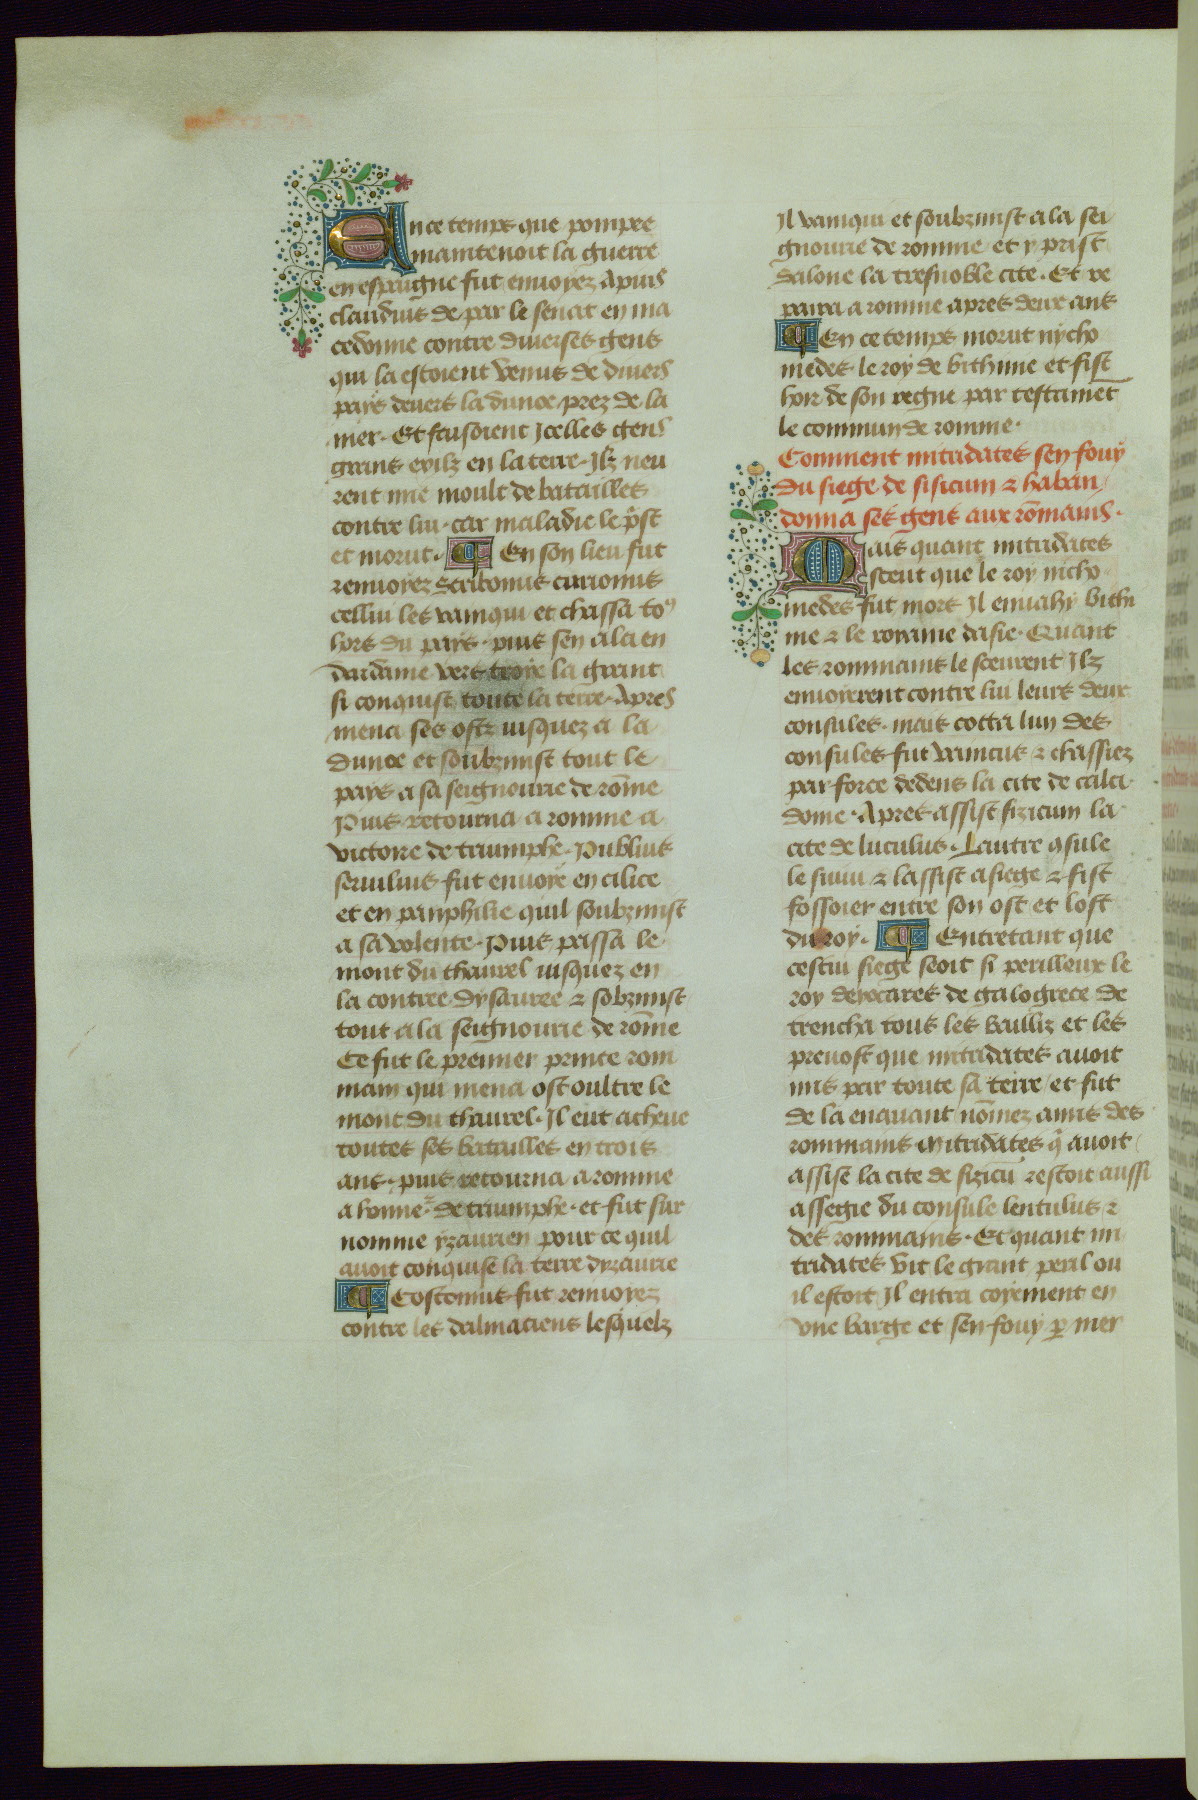 En ce temps que pompee
maintenoit la guerre
en espaigne fut enuoyez Apius
claudius de par le senat en ma
cedonne contre diuerses gens
qui la estoient venus de diuers
pays deuers la dunoe prez de la
mer. Et faisoient Jcelles gens
grans exilz en la terre. Jlz neu
rent mie moult de batailles
contre lui. car maladie le p̃st
et morut. ¶ En son lieu fut
renuoyez Scribonius curionius
cellui les vainqui et chassa to9
hors du pays. puis sen ala en
dardanie vers troye la grant
si conquist toute la terre. Apres
mena ses ostz iusquez a la
dunoe et soubzmist tout le
pays a sa seignourie de rõme
Puis retourna a romme a
victoire de triumphe. Publius
seruilius fut enuoye en cilice
et en panphilie quil soubzmist
a sa volente. Puis passa le
mont du thaurel iusquez en
la contree dysauree ⁊ sobzmist
tout a la seignourie de rõme
Ce fut le premier prince rom
main qui mena ost oultre le
mont du thaurel. Jl eut acheue
toutes ses batailles en trois
ans. puis retourna a romme
a honne᷑ de triumphe. et fut sur
nomme yzaurien pour ce quil
auoit conquise la terre dyzaurie
¶ Costonius fut renuoyez
contre les dalmaciens lesquelz
Jl vainqui et soubzmist a la sei
gnourie de romme et y prist
salone la tresnoble cite. Et re
paira a romme apres deux ans
¶ En ce temps morut nycho
medes le roy de bithinie et fist
hoir de son regne par testamẽt
le commun de romme.
Comment mitridates sen fouy
du siege de sisicum ⁊ haban
donna ses gens aux rõmains.
Mais quant mitridates
sceut que le roy nicho
medes fut mors Jl enuahy bithi
nie ⁊ le royaume dasie. Quant
les rommains le sceurent Jlz
enuoyerent contre lui leurs deux
consules. mais cotta lun des
consules fut vaincus ⁊ chassiez
par force dedens la cite de calci
done. Apres assist sizicum la
cite de luculus. Lautre ꝯsule
le suiui ⁊ lassist a siege ⁊ fist
fossoier entre son ost et lost
du roy. ¶ Entretant que
cestui siege seoit si perilleux le
roy deyocares de galogrece de
trencha tous les bailliz et les
preuost que mitridates auoit
mis par toute sa terre et fut
de la enauant nõmez amis des
rommains. Mitridates q̃ auoit
assise la cite de sizicũ restoit aussi
assegie du consule lentulus ⁊
des rommains. Et quant mi
tridates vit le grant peril ou
il estoit Jl entra coyement en
vne barge et sen fouy ꝑ mer